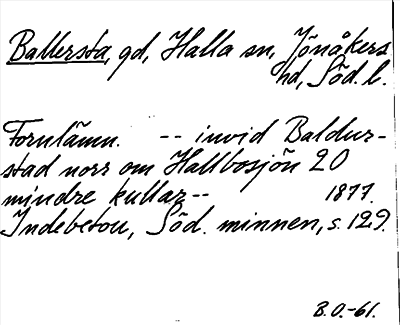 Ballersta, gd, Halla sn, Jönåkers
hd, Söd. l.
Fornlämn. -- invid Baldur-
stad norr om Hallbosjön 20
mindre kullar -- 1877.
Indebetou, Söd. minnen, s. 129.
B.O.-61.